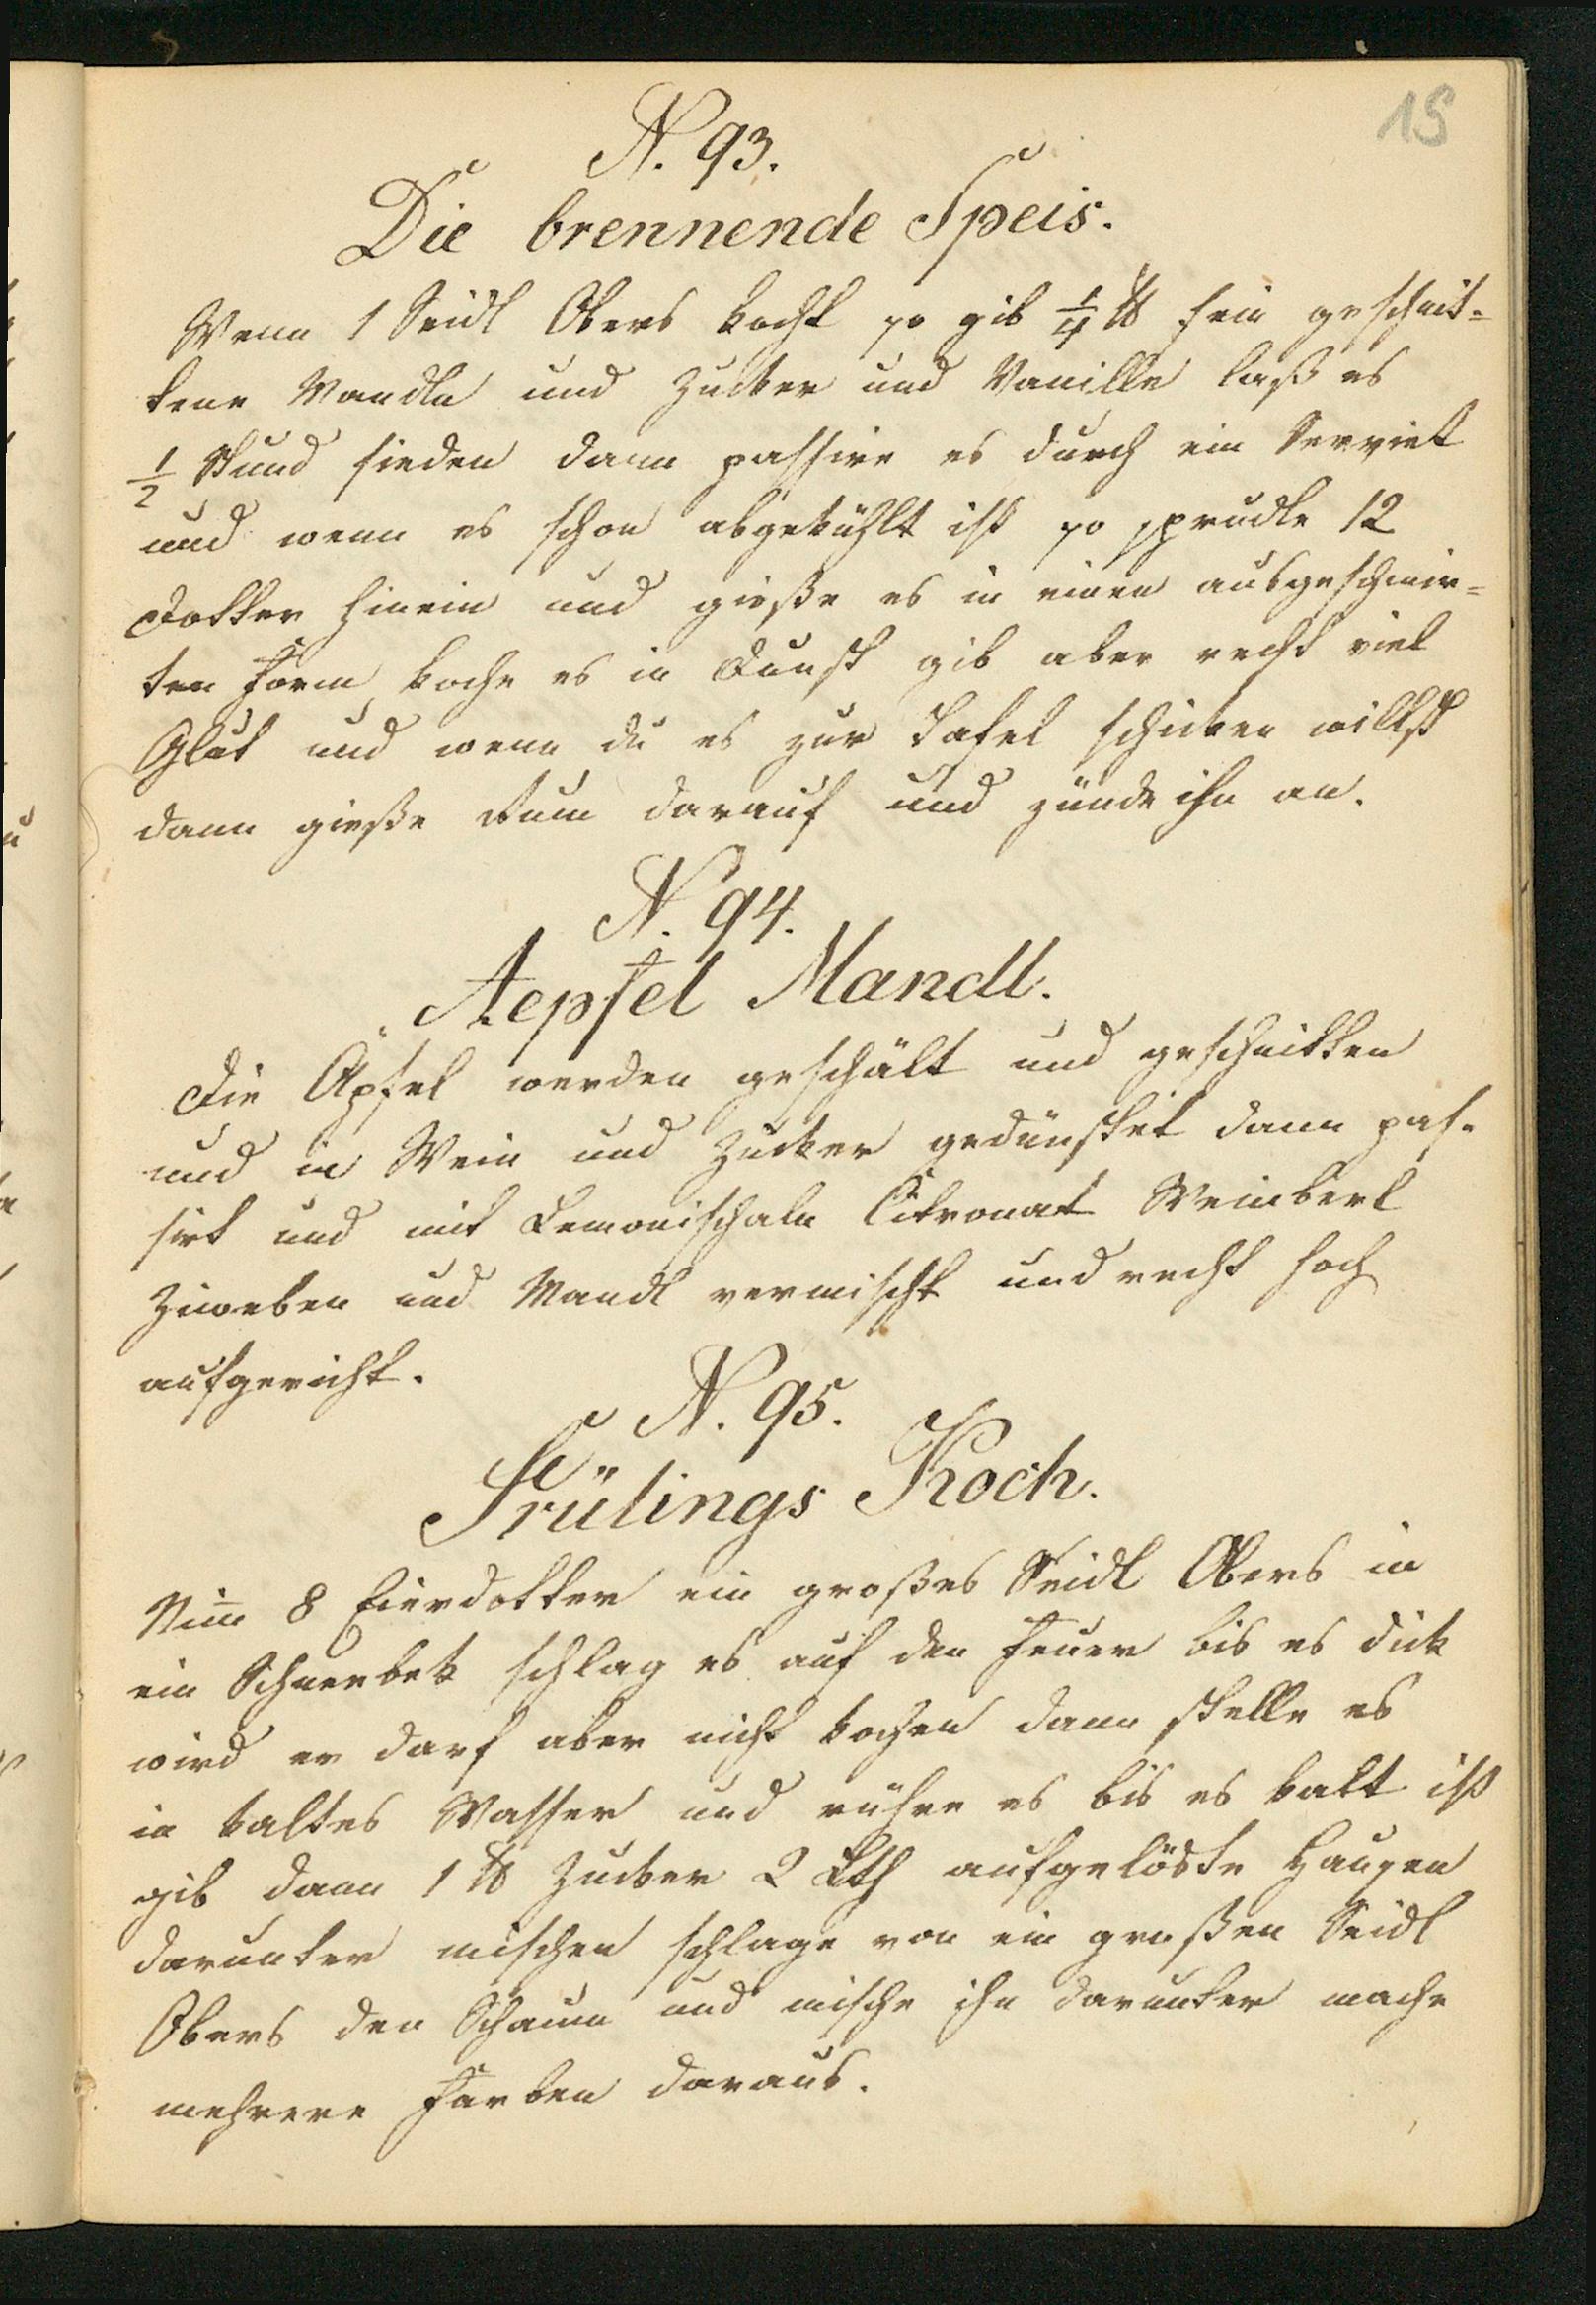 15
N. 93.
Die brennende Speis.
Wenn 1 Seidl Obers kocht so gib 1/4 ℔ fein geschnit=
tene Mandln und Zucker und Vanille laß es
1/2 Stund sieden dann passire es durch ein Serviet
und wenn es schon abgekühlt ist so sprudle 12
Dotter hinein und gieße es in einen ausgeschmir=
ten Form koche es in Dunst gib aber recht viel
Glut und wenn du es zur Tafel schicken willst
dann gieße Rum darauf und zünde ihn an.
N. 94.
Aepfel Mandl.
Die Äpfel werden geschält und geschnitten
und in Wein und Zucker gedünstet dann pas-
sirt und mit Lemonischaln Citronat Weinberl
Ziweben und Mandl vermischt und recht hoch
aufgericht.
N. 95.
Frülings Koch.
Nim̄ 8 Eierdotter ein großes Seidl Obers in
ein Schneebek schlag es auf den Feuer bis es dick
wird er darf aber nicht kochen dann stelle es
in kaltes Wasser und rühre es bis es kalt ist
gib dann 1 ℔ Zucker 2 Lth aufgelöste Hausen
darunter mischen schlage von ein großen Seidl
Obers den Schaum und mische ihn darunter mache
mehrere Farben daraus.